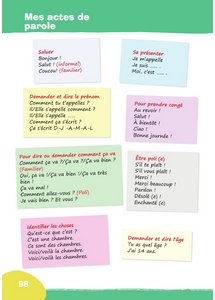 Mes actes de
parole
Saluer
Bonjour !
Salut ! (informel)
Coucou! (Familier)
Se présenter
Je m'appelle
Je suis .... .
Moi, c'est ..... .
Demander et dire le prénom
Comment tu t'appelles ?
Il/Elle s'appelle comment ?
Il/Elle s'appelle .....
Comment ça s'écrit ?
Ça s'écrit D-J -A-M-A-L
Pour prendre congé
Au revoir !
Salut !
A bientôt !
Ciao !
Bonne journée !
Pour dire ou demander comment ça va
Comment ça va ?/Ça va ?/Ça va bien ?
(Familier)
Oui, ça va !/Ça va bien !/Ça va très
bien !
Ça va mal !
Comment allez-vous ? (Poli)
Je vais bien ! Et vous ?
Être poli (e)
S'il te plaît !
S'il vous plaît !
Merci !
Merci beaucoup !
Pardon !
Désolé (e) !
Enchanté (e)
Identifier les choses
Qu'est-ce que c'est ?
C'est une chambre.
Ce sont des chambres.
Voici/voilà la chambre.
Voici/voilà les chambres.
Demander et dire l'âge
Tu as quel âge ?
J'ai 14 ans.
98